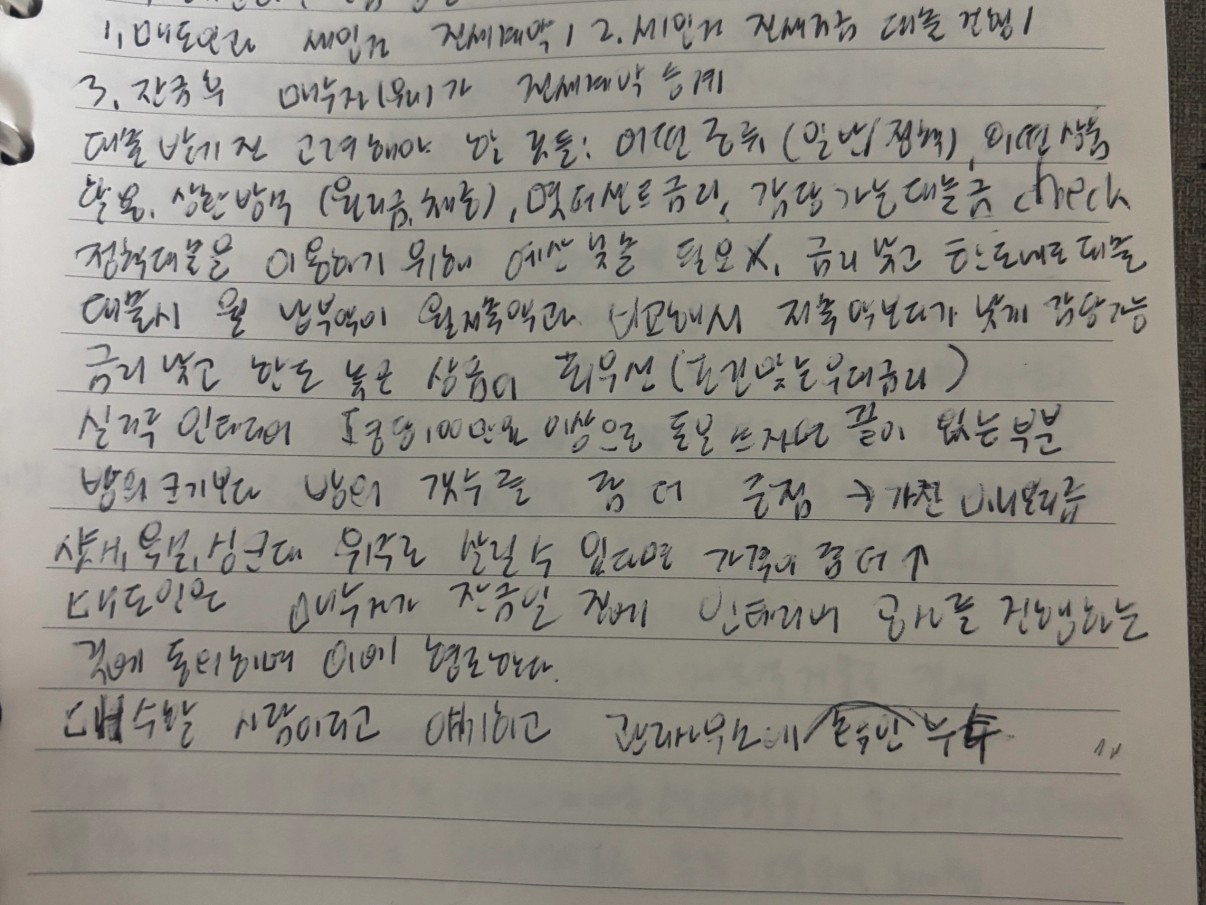 1. 매도인과 세입자 전세계약 / 2. 세입자 전세자금 대출 진행 /
3. 잔금 후 매수자(우리)가 전세계약 승계
대출 받기 전 고려해야 할 것들: 어떤 종류 (일반/정책), 어떤 상품
활용, 상환방식 (원리금, 체증), 몇 퍼센트 금리, 감당 가능 대출금 check
정책대출을 이용하기 위해 예산 낮출 필요 X, 금리 낮고 한도대로 대출
대출시 월 납부액이 월저축액과 비교해서 저축액보다가 낮게 감당가능
금리 낮고 한도 높은 상품이 최우선 (조건맞는 우대금리)
실거주 인테리어 평당 100만원 이상으로 돈을 쓰자면 끝이 없는 부분
방의 크기보다 방의 갯수를 좀 더 중점 →
샷시, 욕실, 싱크대 위주로 살릴 수 있다면 가격이 좀 더 ↑
매도인은 매수자가 잔금일 전에 인테리어 공사를 진행하는
것에 동의하며 이에 협조한다.
매수할 사람이라고 얘기하고 관리사무소에